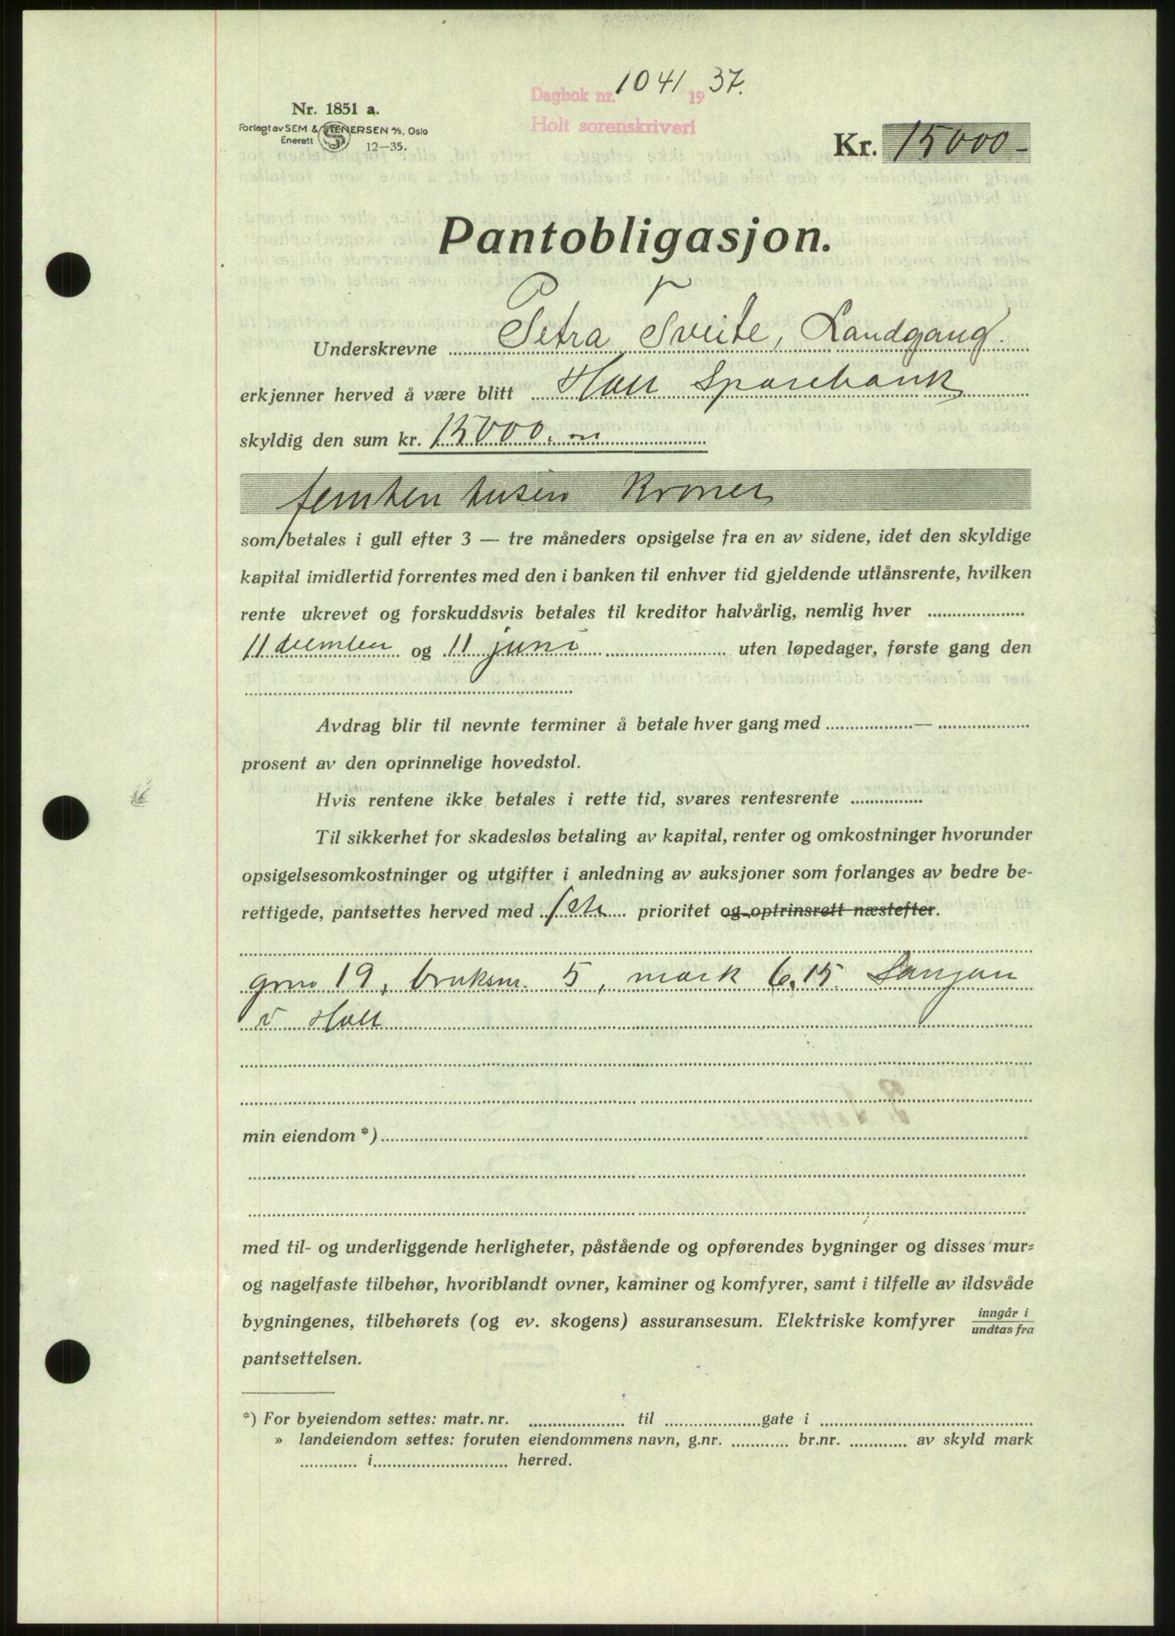 Dagbok nr. 1041 1937.
Holt sorenskriveri
Nr. 1851 a.
Forlagt av SEM & STENERSEN A/S, Oslo
Enerett 12—35.
Kr. 15000-
Pantobligasjon.
Underskrevne Petra Tveite, Landgang.
erkjenner herved å være blitt Holt Sparebank
skyldig den sum kr. 15000.
femten tusen Kroner
som betales i gull efter 3 — tre måneders opsigelse fra en av sidene, idet den skyldige
kapital imidlertid forrentes med den i banken til enhver tid gjeldende utlånsrente, hvilken
rente ukrevet og forskuddsvis betales til kreditor halvårlig, nemlig hver
11 desember og 11 juni uten løpedager, første gang den
Avdrag blir til nevnte terminer å betale hver gang med —
prosent av den oprinnelige hovedstol.
Hvis rentene ikke betales i rette tid, svares rentesrente
Til sikkerhet for skadesløs betaling av kapital, renter og omkostninger hvorunder
opsigelsesomkostninger og utgifter i anledning av auksjoner som forlanges av bedre be-
rettigede, pantsettes herved med 1ste prioritet og optrinsrett næstefter.
grno 19, bruksnr. 5, mark 6,15
i Holt
min eiendom *)
med til- og underliggende herligheter, påstående og opførendes bygninger og disses mur-
og nagelfaste tilbehør, hvoriblandt ovner, kaminer og komfyrer, samt i tilfelle av ildsvåde
bygningenes, tilbehørets (og ev. skogens) assuransesum. Elektriske komfyrer inngår i
undtas fra
pantsettelsen.
*) For byeiendom settes: matr. nr. til gate i
» landeiendom settes: foruten eiendommens navn, g.nr. br.nr. av skyld mark
i herred.